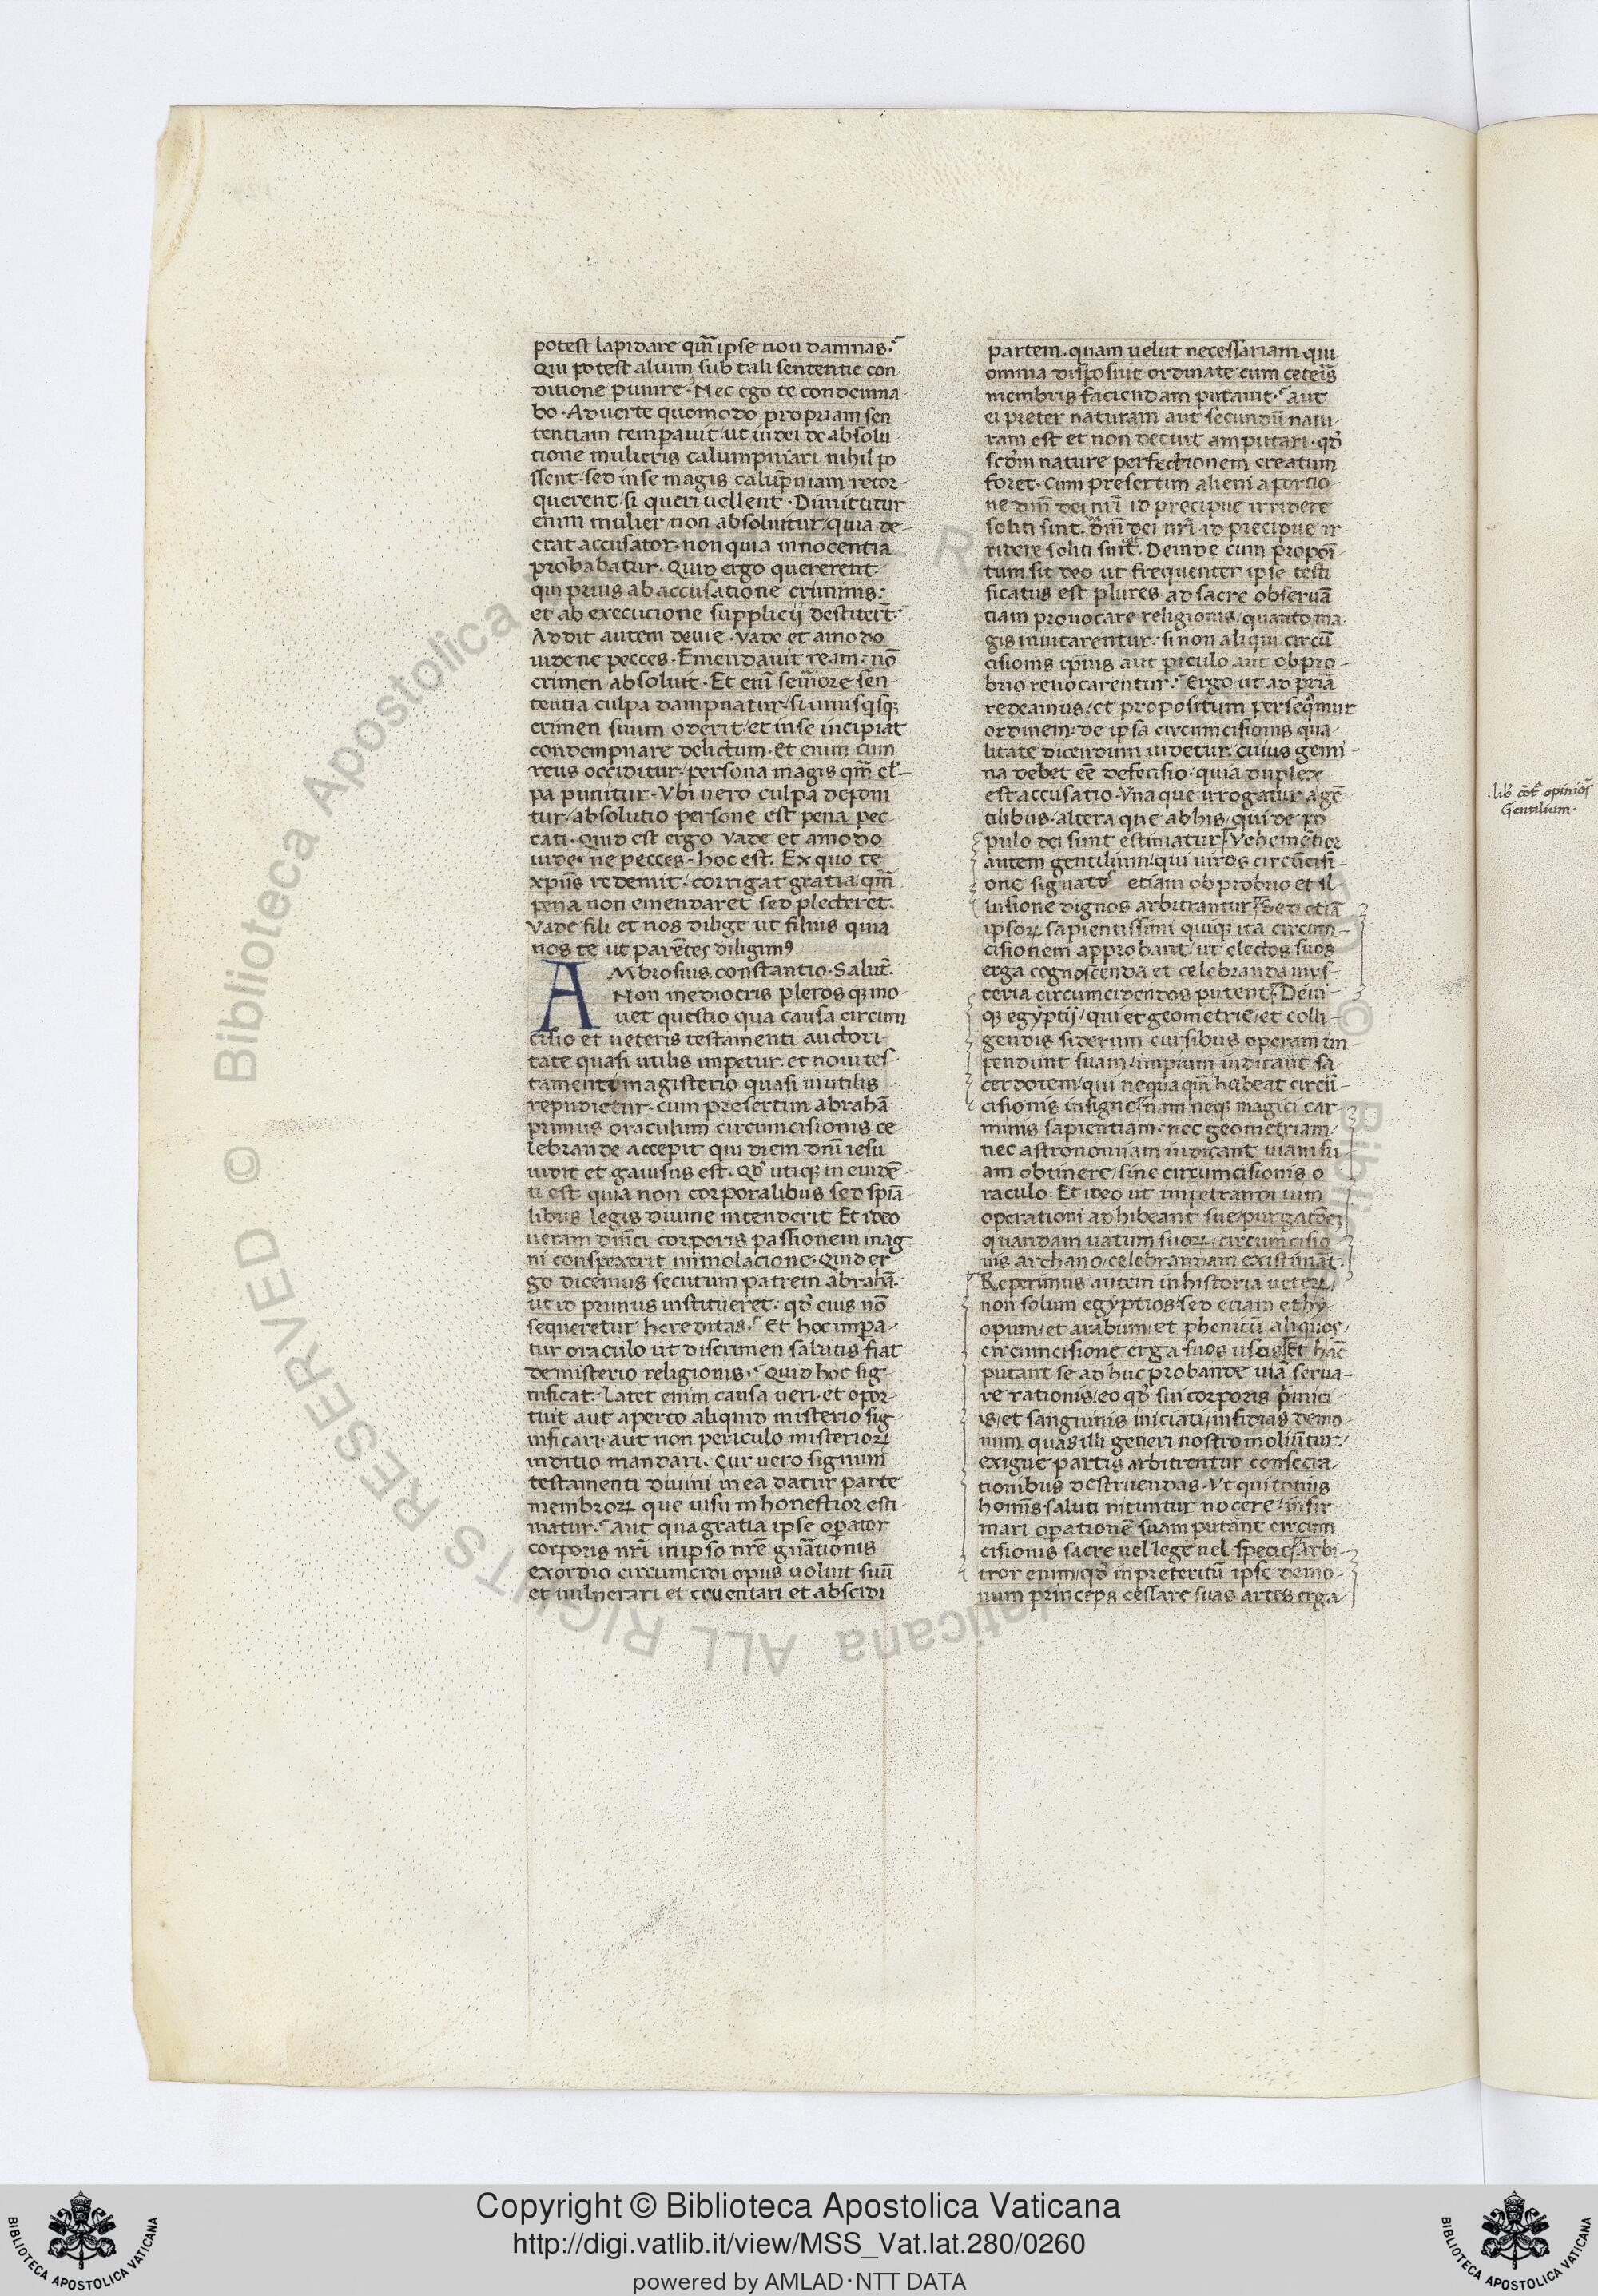 potest lapidare qm̄ ipse non damnas.
Qui potest alium sub tali sententie con
ditione punire. Nec ego te condemna
bo. Aduerte quomodo propriam sen
tentiam temp̄auit ut iudei de absolu
tione mulieris calumpniari nihil po
ssent. sed in se magis calūpniam retor
querent. si queri uellent. Dimittitur
enim mulier, non absoluitur, quia de
erat accusator. non quia innocentia
probabatur. Quid ergo quererent
qui prius ab accusatione criminis.
et ab execucione supplicij destiterēt.
Addit autem deuie. Vade et amodo
uide ne pecces. Emendauit ream. nō
crimen absoluit. Et
tentia culpa dampnatur. si unusq̄sq̨
crimen suum oderit. et in se incipiat
condempnare delictum. Et enim cum
reus occiditur. persona magis qm̄ cl̄
pa punitur. Vbi uero culpa depom
tur. absolutio persone est pena pec
cati. Quid est ergo Vade et amodo
uide ne pecces. hoc est. Ex quo te
xp̄us redemit. corrigat gratia, qm̄
pena non emendaret sed plecteret.
Vade fili et nos dilige ut filius quia
nos te ut parētes diligim9
AMbrosius constantio. Salut̄.
Non mediocris pleros q̨ mo
uet questio qua causa circum
cisio et ueteris testamenti auctori
tate quasi utilis imp̄etur. et noui tes
tamenti magisterio quasi inutilis
repudietur. cum presertim abrahā
primus oraculum circumcisionis ce
lebrande accepit qui diem dn̄i iesu
uidit et gauisus est. Qd̄ utiq̨ in euidē
ti est quia non corporalibus sed sp̄ia
libus legis diuine intenderit Et ideo
ueram dn̄ici corporis passionem in ag
ni conspexerit immolacione. Quid er
go dicemus secutum patrem abrahā.
ut id primus institueret. qd̄ eius nō
sequeretur hereditas. Et hoc impa
tur oraculo ut discrimen salutis fiat
de misterio religionis. Quid hoc sig
nificat. Latet enim causa ueri. et opor
tuit aut aperto aliquid misterio sig
nificari. aut non periculo misterioꝝ
inditio mandari. Cur uero signum
testamenti diuini in ea datur parte
membroꝝ que uisu inhonestior esti
matur. Aut qua gratia ipse op̄ator
corporis nr̄i in ipso nr̄e gn̄ationis
exordio circumcidi opus uoluit suū
et uulnerari et cruentari et abscidi
partem. quam uelut necessariam qui
omnia disposuit ordinate cum ceteris
membris faciendam putauit. Aut
ei preter naturam aut secundū natu
ram est et non decuit amputari. qd̄
scdm̄ nature perfectionem creatum
foret. Cum presertim alieni a porcio
ne dn̄i dei nr̄i id precipue irridere
soliti sint. dn̄i dei nr̄i id precipue ir
ridere soliti sint. Deinde cum propoi
tum sit deo ut frequenter ipse testi
ficatus est plures ad sacre obseruā
tiam prouocare religionis, quanto ma
gis inuitarentur. si non aliqui circū
cisionis ip̄ius aut p̄iculo aut obpro
brio reuocarentur. Ergo ut ad p̄riā
redeamus. et propositum perseq̄mur
ordinem. de ipsa circumcisionis qua
litate dicendum uidetur. cuius gemi
na debet ee̅ defensio. quia duplex
est accusatio. Vna que irrogatur a gē
tilibus. altera que ab his, qui de po
pulo dei sunt estimatur. Vehemētior
autem gentilium, qui uiros circūcisi
one signatos etiam obprobrio et il
lusione dignos arbitrantur. Sed etiā
ipsoꝝ sapientissimi quiq̨ ita circum
cisionem approbant. ut electos suos
erga cognoscenda et celebranda mys
teria circumcidendos putent. Deni
q̨ egyptij, qui et geometrie, et colli
gendis siderum cursibus operam im
pendunt suam, impium iudicant sa
cerdotem, qui nequaqm̄ habeat circū
cisionis insigne. nam neq̨ magici car
minis sapientiam. nec geometriam.
nec astronomiam iudicant uiam su
am obtinere, sine circumcisionis o
raculo. Et ideo ut impetrandi uim
operationi adhibeant sue, purgatōez
quandam uatum suoꝝ, circumcisio
nis archano, celebrandam existimāt.
Reperimus autem in historia ueteꝝ,
non solum egyptios, sed eciam ethy
opum, et arabum, et phenicū aliquos,
circumcisione erga suos usos, Et hāc
putant se adhuc probande uiā serua
re rationis, eo qd̄ sui corporis p̄mici
is, et sanguinis iniciati, insidias demo
num, quas illi generi nostro moliūtur.
exigue partis arbitrentur consecra
tionibus destruendas. Vt qui totius
homīs saluti nituntur nocere. infir
mari op̄ationē suam putant circum
cisionis sacre uel lege uel specie. Arbi
tror enim, qd̄ in preteritū ipse demo
num princeps cessare suas artes erga
.lib̄ cōt̄ opinion̄
Gentilium.
Copyright © Biblioteca Apostolica Vaticana
http://digi.vatlib.it/view/MSS_Vat.lat.280/0260
powered by AMLAD·NTT DATA
BIBLIOTECA APOSTOLICA VATICANA
BIBLIOTECA APOSTOLICA VATICANA
© Biblioteca Apostolica Vaticana ALL RIGHTS RESERVED